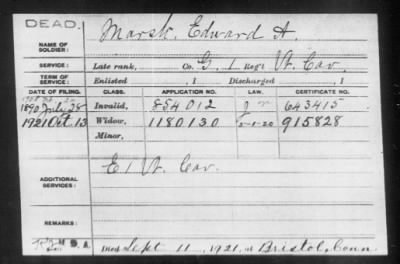 DEAD.
NAME OF SOLDIER: Marsh, Edward A.
SERVICE: Late rank, Co. G, 1 Reg't Vt. Cav.
TERM OF SERVICE: Enlisted , 1 Discharged , 1
DATE OF FILING. CLASS. APPLICATION NO. LAW. CERTIFICATE NO.
1890 July 28 Invalid, 854012 643415
1921 Oct. 13 Widow, 1180130 5-1-20 915828
Minor,
ADDITIONAL SERVICES: E 1 Vt. Cav.
REMARKS:
Died Sept 11, 1921, at Bristol, Conn